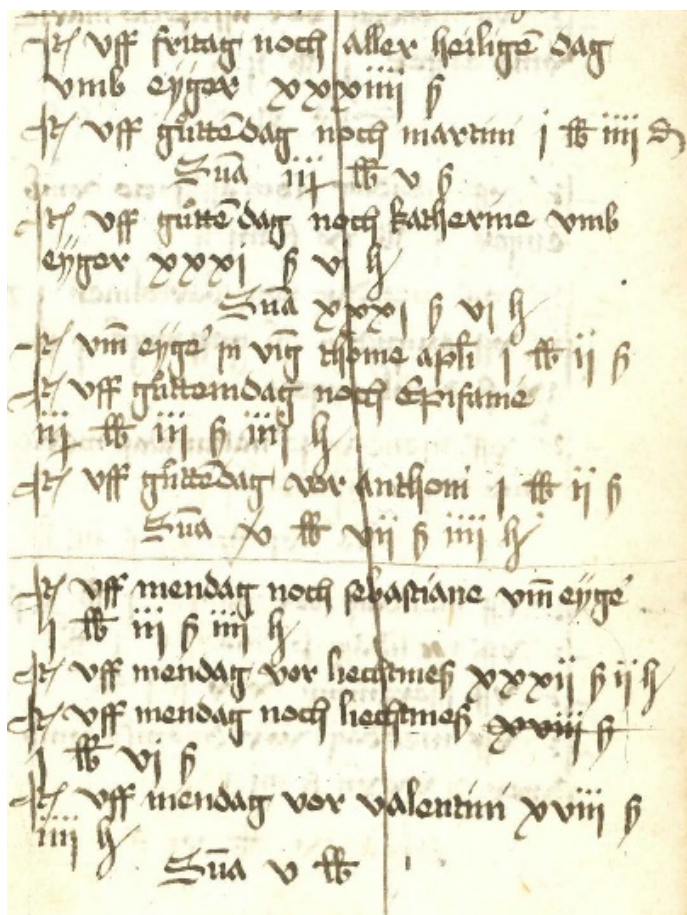 It uff fritag noch aller heiligē dag
vmb eyger xxxiiii ß
It uff gůttēdag noch martini i lb iiii d
Sūa iij lb v ß
It uff gůttēdag noch katherine vmb
eyger xxxi ß vi h
Sūa xxxi ß vi h
It vm̄ eyge' in vig thome apli i lb ii ß
It uff gůttemdag noch Epifanie
iij lb iii ß iiij h
It uff gůttēdag vor anthoni i lb ii ß
Sūa x lb vii ß iiii h
It uff mendag noch sebastiane vm̄ eyge'
i lb iii ß iiii h
It uff mendag vor liechtmeß xxxii ß ii h
It uff mendag noch liechtmeß xviii ß
i lb vi ß
It uff mendag vor valentini xviii ß
iiii h
Sūa v lb